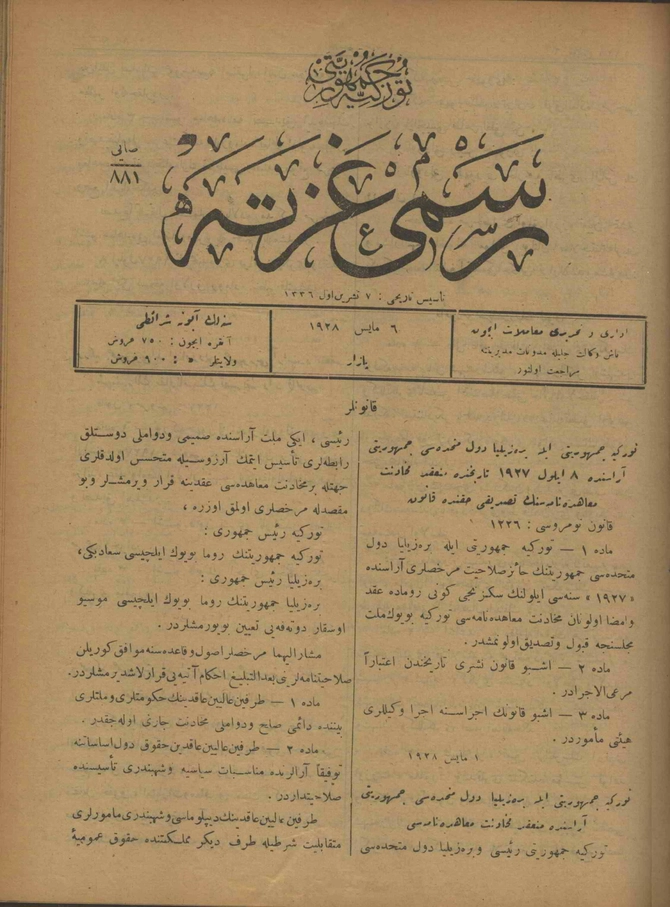 توركيه جمهوريتى
رسمى غزته
صايى
٨٨١
تأسيس تاريخى : ٧ تشرين اول ١٣٣٦
ادارى و تحريرى معاملات ايچون
باش وكالت جليله مدونات مديريتنه
مراجعت اولنور
٦ مايس ١٩٢٨
پازار
سنه‌لك آبونه شرائطى
آنقره ايچون : ٧٥٠ غروش
ولايتلر » : ٩٠٠ غروش
قانونلر
توركيه جمهوريتى ايله بره‌زيليا دول متحده‌سى جمهوريتى
آراسنده ٨ ايلول ١٩٢٧ تاريخنده منعقد مخادنت
معاهده‌نامه‌سنك تصديقى حقنده قانون
قانون نومروسى : ١٢٣٦
ماده ١ — توركيه جمهوريتى ايله بره‌زيليا دول
متحده‌سى جمهوريتنك حائز صلاحيت مرخصلرى آراسنده
«١٩٢٧» سنه‌سى ايلولنك سكزنجى كونى روماده عقد
وامضا اولونان مخادنت معاهده‌نامه‌سى توركيه بويوك ملت
مجلسنجه قبول وتصديق اولونمشدر .
ماده ٢ — اشبو قانون نشرى تاريخندن اعتباراً
مرعى الاجرادر .
ماده ٣ — اشبو قانونك اجراسنه اجرا وكيللرى
هيئتى مأموردر .
١ مايس ١٩٢٨
توركيه جمهوريتى ايله بره‌زيليا دول متحده‌سى جمهوريتى
آراسنده منعقد مخادنت معاهده‌نامه‌سى
توركيه جمهوريتى رئيسى وبره‌زيليا دول متحده‌سى
رئيسى ، ايكى ملت آراسنده صميمى ودواملى دوستلق
رابطه‌لرى تأسيس ايتمك آرزوسيله متحسس اولدقلرى
جهتله بر مخادنت معاهده‌سى عقدينه قرار ويرمشلر وبو
مقصدله مرخصلرى اولمق اوزره ،
توركيه رئيس جمهورى :
توركيه جمهوريتنك روما بويوك ايلچيسى سعاد بكى ،
بره‌زيليا رئيس جمهورى :
بره‌زيليا جمهوريتنك روما بويوك ايلچيسى موسيو
اوسقار دوته‌فه‌يى تعيين بويورمشلردر .
مشاراليهما مرخصلر اصول وقاعده‌سنه موافق كوريلن
صلاحيتنامه‌لرينى بعدالتبليغ احكام آتيه‌يى قرارلاشديرمشلردر .
ماده ١ — طرفين عاليين عاقدينك حكومتلرى وملتلرى
بيننده دائمى صلح ودواملى مخادنت جارى اوله‌جقدر .
ماده ٢ — طرفين عاليين عاقدين حقوق دول اساساتنه
توفيقاً آرالرنده مناسبات سياسيه وشهبندرى تأسيسنده
صلاحيتداردر .
طرفين عاليين عاقدينك ديپلوماسى وشهبندرى مامورلرى
متقابليت شرطيله طرف ديكر مملكتنده حقوق عموميۀ